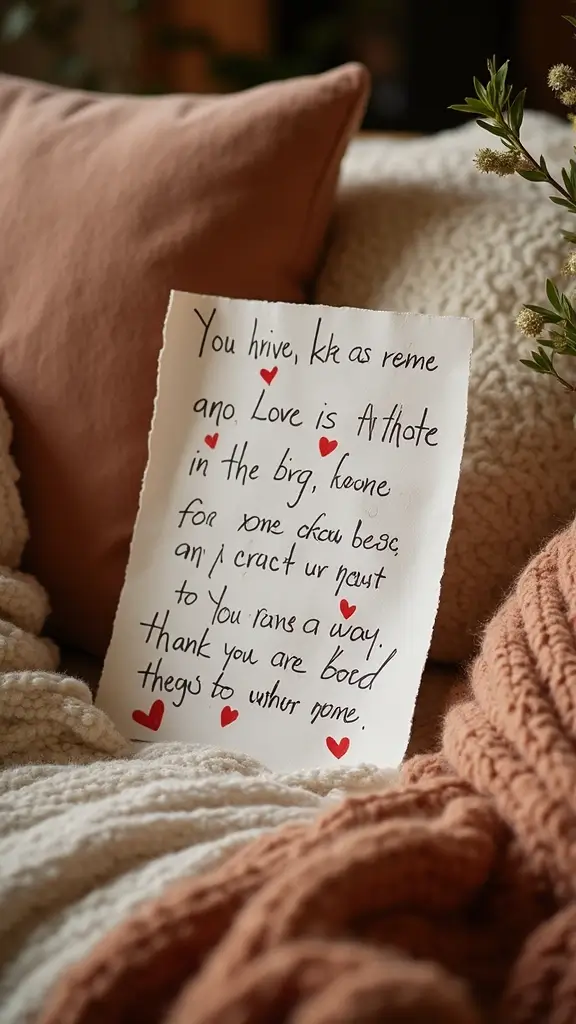 You hrive, kk as reme
ano. Love is Athote
in the brg, keone
for xone ckau besc,
an I cract ur naut
to You rans a way.
thank you are boed
thegs to wrhur nome.